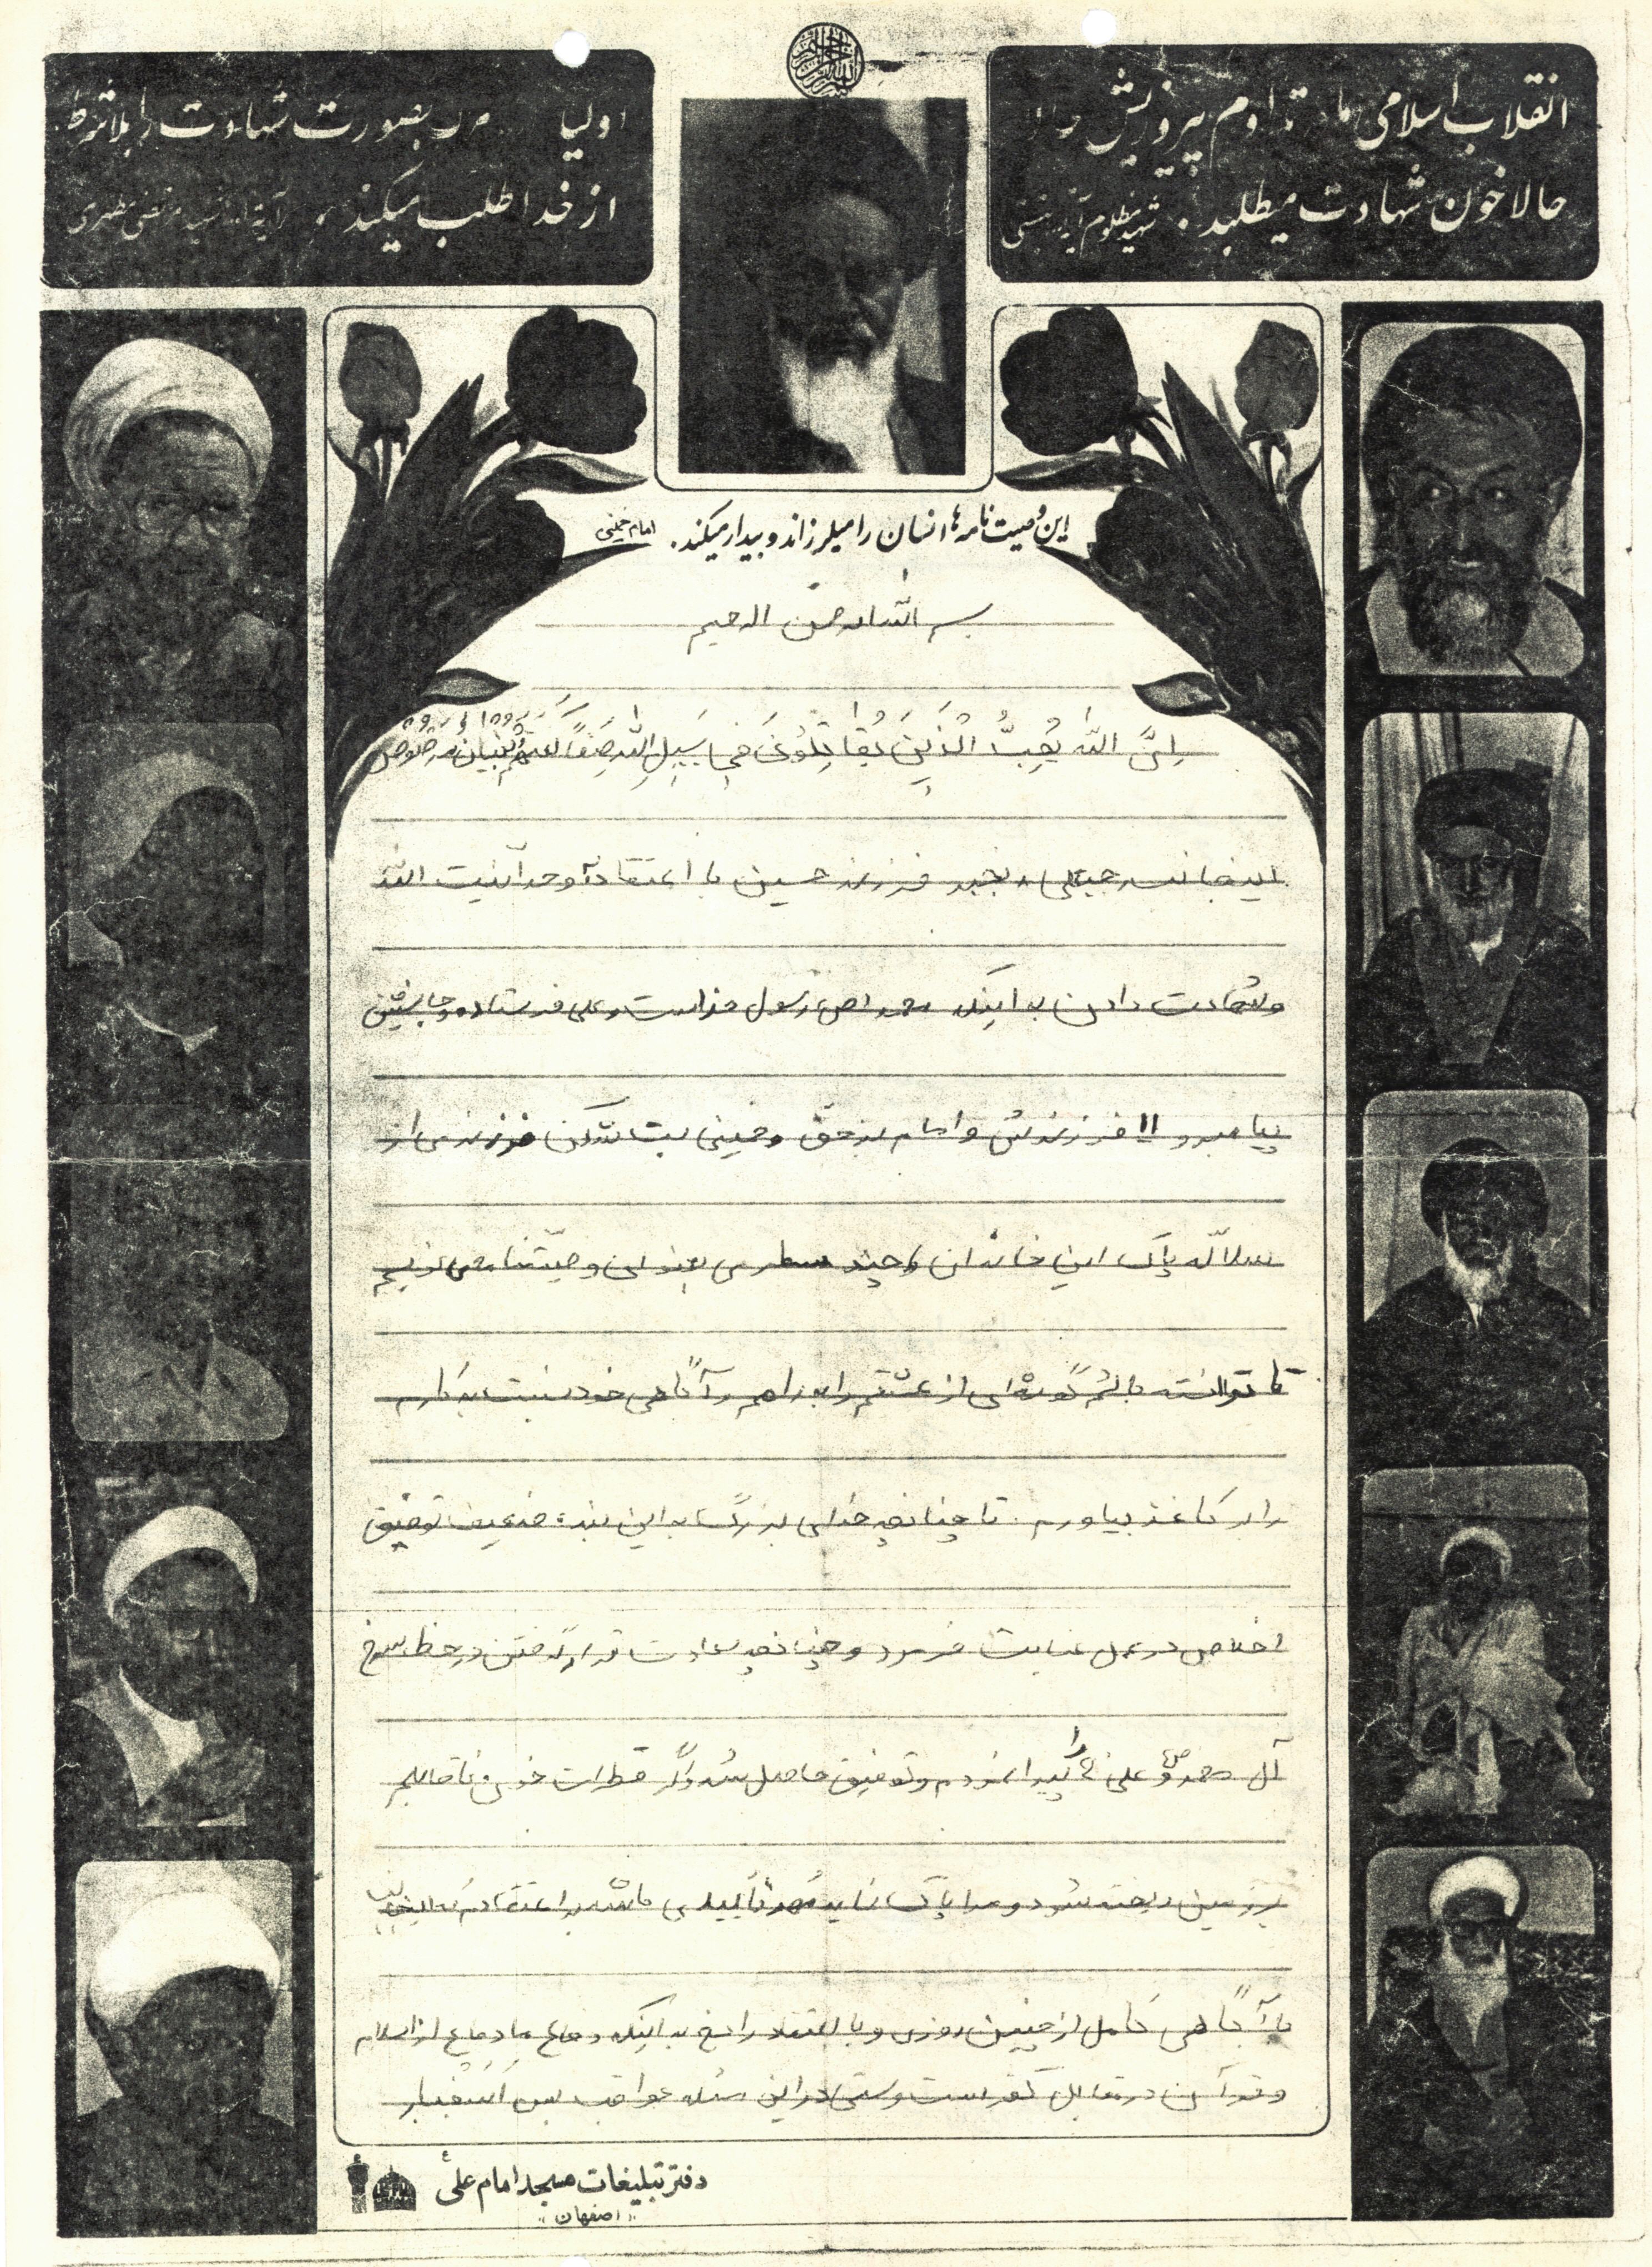 انقلاب اسلامی ما، تداوم پیروزیش
حالا خون شهادت میطلبد. شهید مظلوم آیة بهشتی
اولیا مرگ بصورت شهادت را بلاشرط
از خدا طلب میکنند، آیة مرتضی مطهری
این وصیت‌نامه‌ها انسان را میلرزاند و بیدار میکند. امام خمینی
بسم الله الرحمن الرحیم
إِنَّ اللهَ يُحِبُّ الَّذِينَ يُقَاتِلُونَ فِي سَبِيلِ اللهِ صَفًّا كَأَنَّهُمْ بُنْيَانٌ مَرْصُوصٌ
اینجانب رنجبر فرزند حسین با اعتقاد به وحدانیت الله
و شهادت دادن به اینکه محمد (ص) رسول خداست و علی فرستاده و جانشین
پیامبر و ۱۱ فرزندش و امام بر حق و خمینی بت شکن فرزندی از
سلاله پاک این خاندان چند سطری بعنوان وصیتنامه می نویسم
تا توانسته باشم گوشه‌ای از عشقم را به راهم و آگاهی خود نسبت به کارم
را بر کاغذ بیاورم. تا چنانچه خدای بزرگ به این بنده ضعیف توفیق
اخلاص در عمل عنایت فرمود و چنانچه سعادت قرار گرفتن در خط سرخ
آل محمد (ص) و علی (ع) را پیدا نمودم و توفیق حاصل شد و اگر قطرات خون ناقابلم
بر زمین ریخته شود و مرا پاک نماید مهر تأییدی باشد بر اعتقادم که اینجانب
با آگاهی کامل از چنین روزی و با اعتقاد راسخ به اینکه دفاع ما دفاع از اسلام
و قرآن در مقابل کفر است و سستی در این مسئله عواقب بس اسفبار
دفتر تبلیغات مسجد امام علی
اصفهان